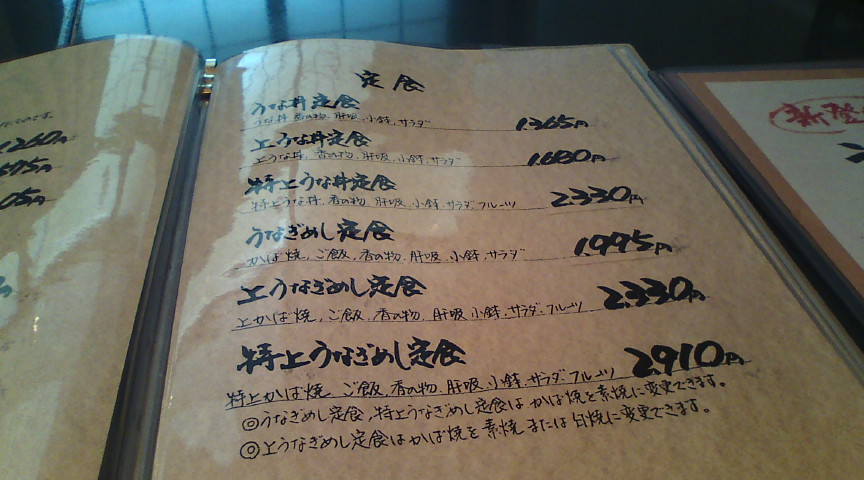 1,260円
定食
うな丼定食
うな丼、香の物、肝吸、小鉢、サラダ 1,365円
上うな丼定食
上うな丼、香の物、肝吸、小鉢、サラダ 1,680円
特上うな丼定食
特上うな丼、香の物、肝吸、小鉢、サラダ、フルーツ 2,330円
うなぎめし定食
かば焼、ご飯、香の物、肝吸、小鉢、サラダ 1,995円
上うなぎめし定食
上かば焼、ご飯、香の物、肝吸、小鉢、サラダ、フルーツ 2,330円
特上うなぎめし定食
特上かば焼、ご飯、香の物、肝吸、小鉢、サラダ、フルーツ 2,910円
◎うなぎめし定食、特上うなぎめし定食はかば焼を素焼に変更できます。
◎上うなぎめし定食はかば焼を素焼または白焼に変更できます。
新登